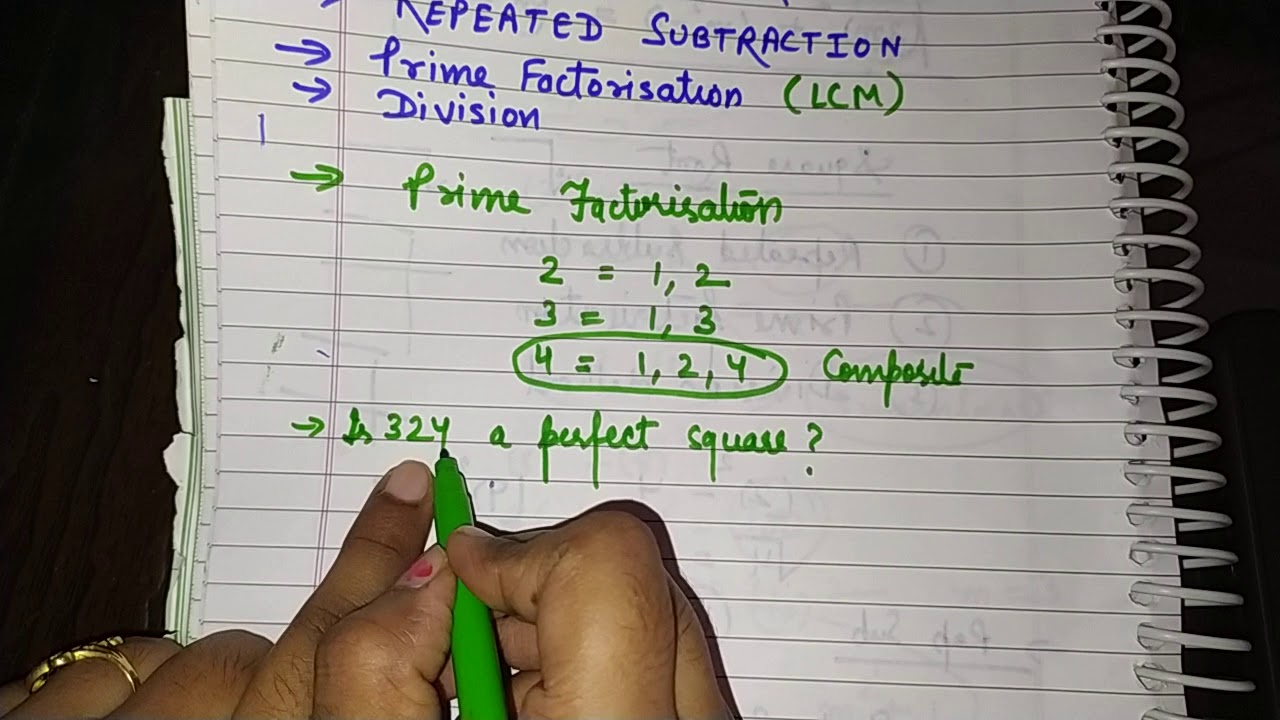 REPEATED SUBTRACTION
→ Prime Factorisation (LCM)
→ Division
→ Prime Factorisation
2 = 1, 2
3 = 1, 3
4 = 1, 2, 4 Composite
→ Is 324 a perfect square?